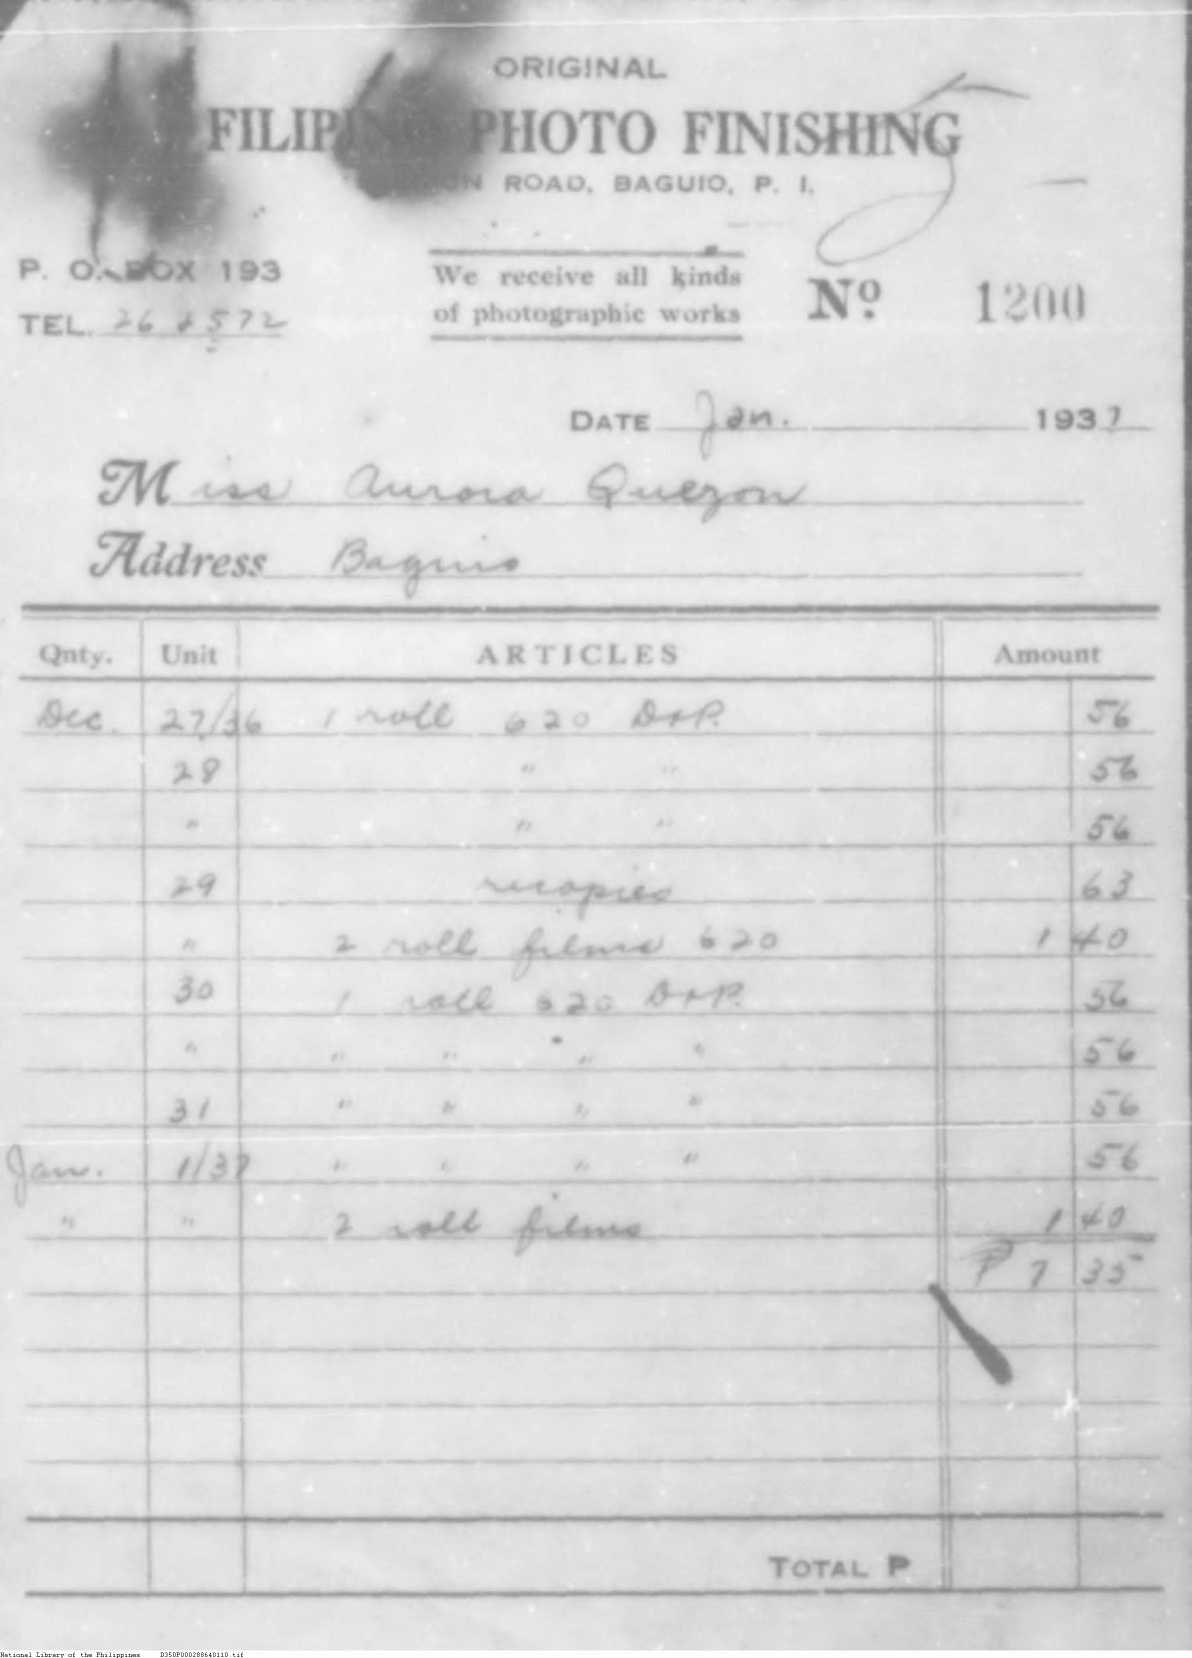 ORIGINAL
FILIPINO PHOTO FINISHING
ROAD, BAGUIO, P. I.
P. O. BOX 193
We receive all kinds
of photographic works
Nº 1200
TEL. 26 & 572
DATE Jan. 1937
Miss Aurora Quezon
Address Baguio
Qnty. Unit ARTICLES Amount
Dec. 27/36 1 roll 620 D+P. 56
28 " " 56
" " " 56
29 recopies 63
" 2 roll films 620 1 40
30 1 roll 620 D+P. 56
" " " " " 56
31 " " " " 56
Jan. 1/37 " " " " 56
" " 2 roll films 1 40
₱ 7 35
TOTAL ₱
National Library of the Philippines D350P000288640110.tif